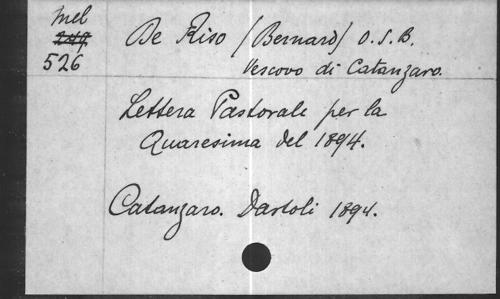 Mel
526
De Riso (Bernard) O.S.B.
Vescovo di Catanzaro.
Lettera Pastorale per la
Quaresima del 1894.
Catanzaro. Dastoli 1894.